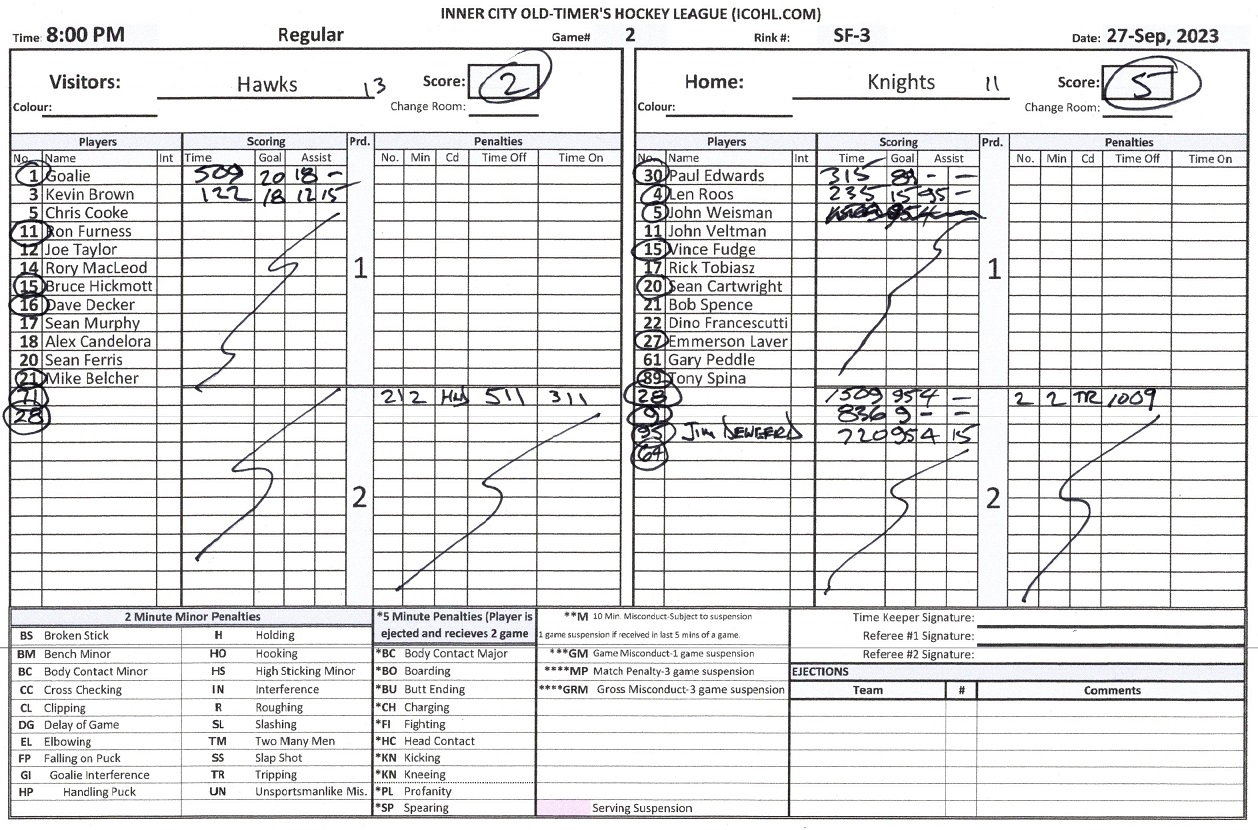 INNER CITY OLD-TIMER'S HOCKEY LEAGUE (ICOHL.COM)
Time: 8:00 PM Regular Game# 2 Rink #: SF-3 Date: 27-Sep, 2023
Visitors: Hawks 13 Score: 2 Home: Knights 11 Score: 5
Colour: Change Room: Colour: Change Room:
Players Scoring Prd. Penalties Players Scoring Prd. Penalties
No. Name Int Time Goal Assist No. Min Cd Time Off Time On No. Name Int Time Goal Assist No. Min Cd Time Off Time On
1 Goalie 509 20 18 - 30 Paul Edwards 315 89 - -
3 Kevin Brown 122 18 12 15 4 Len Roos 235 15 95 -
5 Chris Cooke 5 John Weisman
11 Ron Furness 11 John Veltman
12 Joe Taylor 15 Vince Fudge
14 Rory MacLeod 1 17 Rick Tobiasz 1
15 Bruce Hickmott 20 Sean Cartwright
16 Dave Decker 21 Bob Spence
17 Sean Murphy 22 Dino Francescutti
18 Alex Candelora 27 Emmerson Laver
20 Sean Ferris 61 Gary Peddle
21 Mike Belcher 89 Tony Spina
71 21 2 511 311 28 1509 95 4 - 2 2 TR 1009
28 9 836 9 - -
95 Jim 720 95 4 15
2 2
2 Minute Minor Penalties *5 Minute Penalties (Player is ejected and recieves 2 game **M 10 Min. Misconduct-Subject to suspension Time Keeper Signature:
BS Broken Stick H Holding 1 game suspension if received in last 5 mins of a game. Referee #1 Signature:
BM Bench Minor HO Hooking *BC Body Contact Major ***GM Game Misconduct-1 game suspension Referee #2 Signature:
BC Body Contact Minor HS High Sticking Minor *BO Boarding ****MP Match Penalty-3 game suspension EJECTIONS
CC Cross Checking IN Interference *BU Butt Ending ****GRM Gross Misconduct-3 game suspension Team # Comments
CL Clipping R Roughing *CH Charging
DG Delay of Game SL Slashing *FI Fighting
EL Elbowing TM Two Many Men *HC Head Contact
FP Falling on Puck SS Slap Shot *KN Kicking
GI Goalie Interference TR Tripping *KN Kneeing
HP Handling Puck UN Unsportsmanlike Mis. *PL Profanity
*SP Spearing Serving Suspension